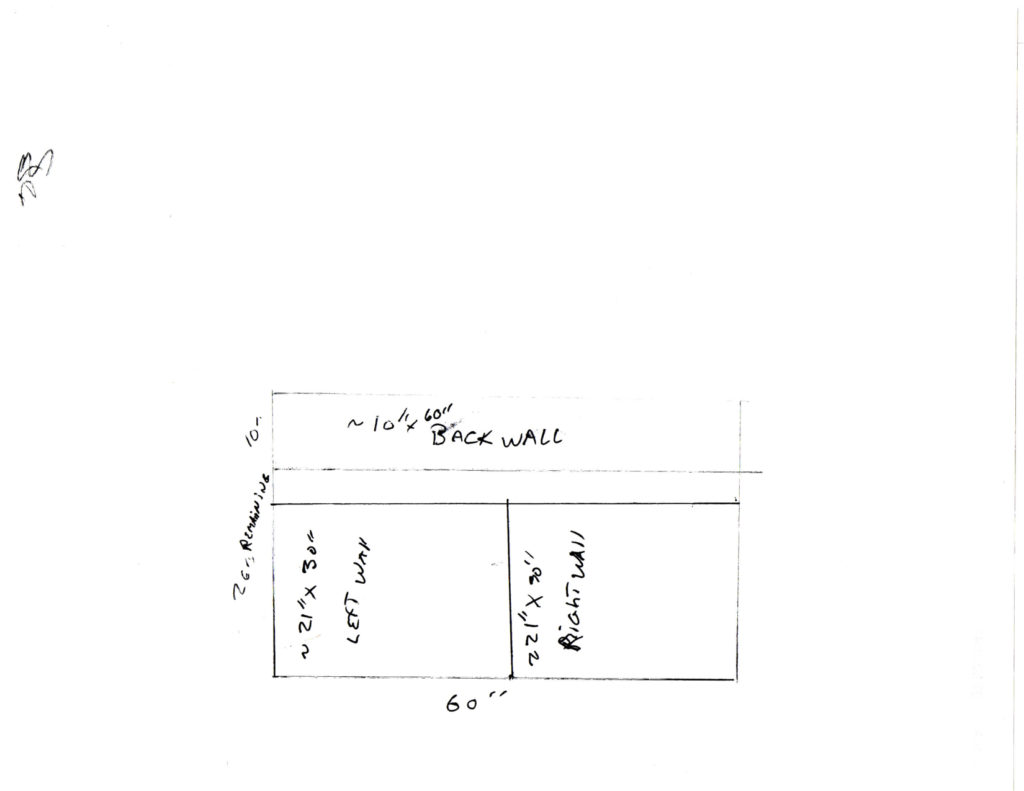 ~ 10" x 60"
BACK WALL
10"
26" REMAINING
~ 21" X 30"
LEFT WALL
~ 21" X 30"
RIGHT WALL
60"